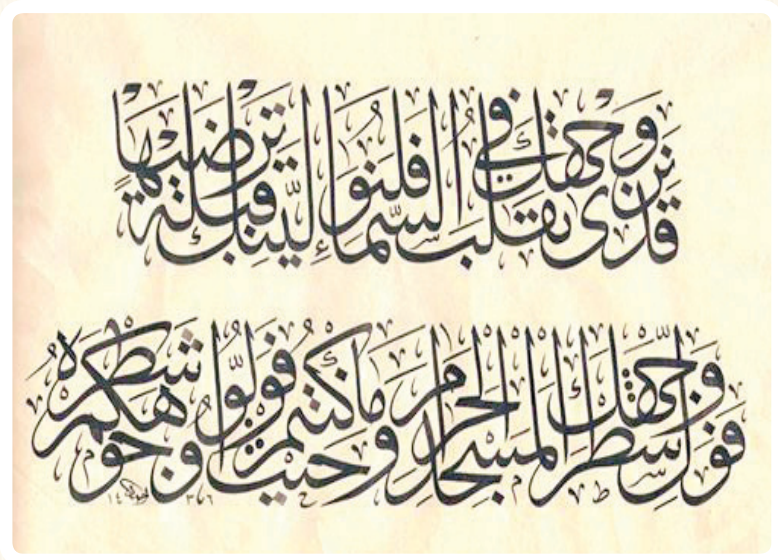 قد نرى تقلب وجهك في السماء فلنولينك قبلة ترضيها
فول وجهك شطر المسجد الحرام وحيث ما كنتم فولوا وجوهكم شطره